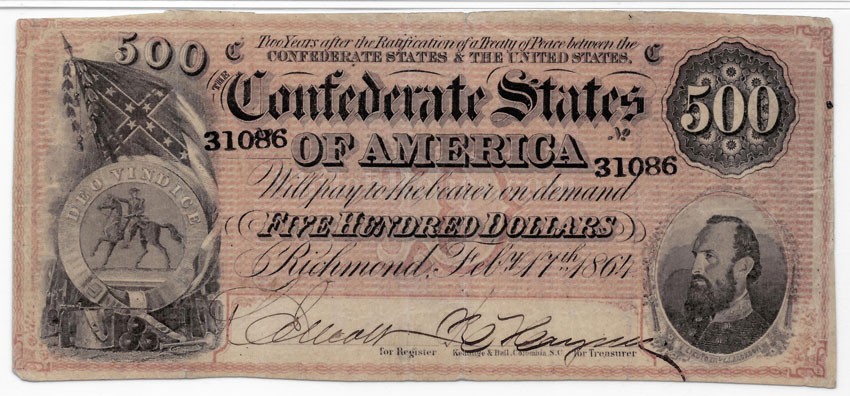 500
C
Two Years after the Ratification of a Treaty of Peace between the
C
CONFEDERATE STATES & THE UNITED STATES,
THE
Confederate States
500
No
31086
OF AMERICA
No
31086
Will pay to the bearer on demand
DEO VINDICE
FIVE HUNDRED DOLLARS
Richmond, Feby. 17th 1864
for Register
Keatinge & Ball, Columbia, S.C.
for Treasurer